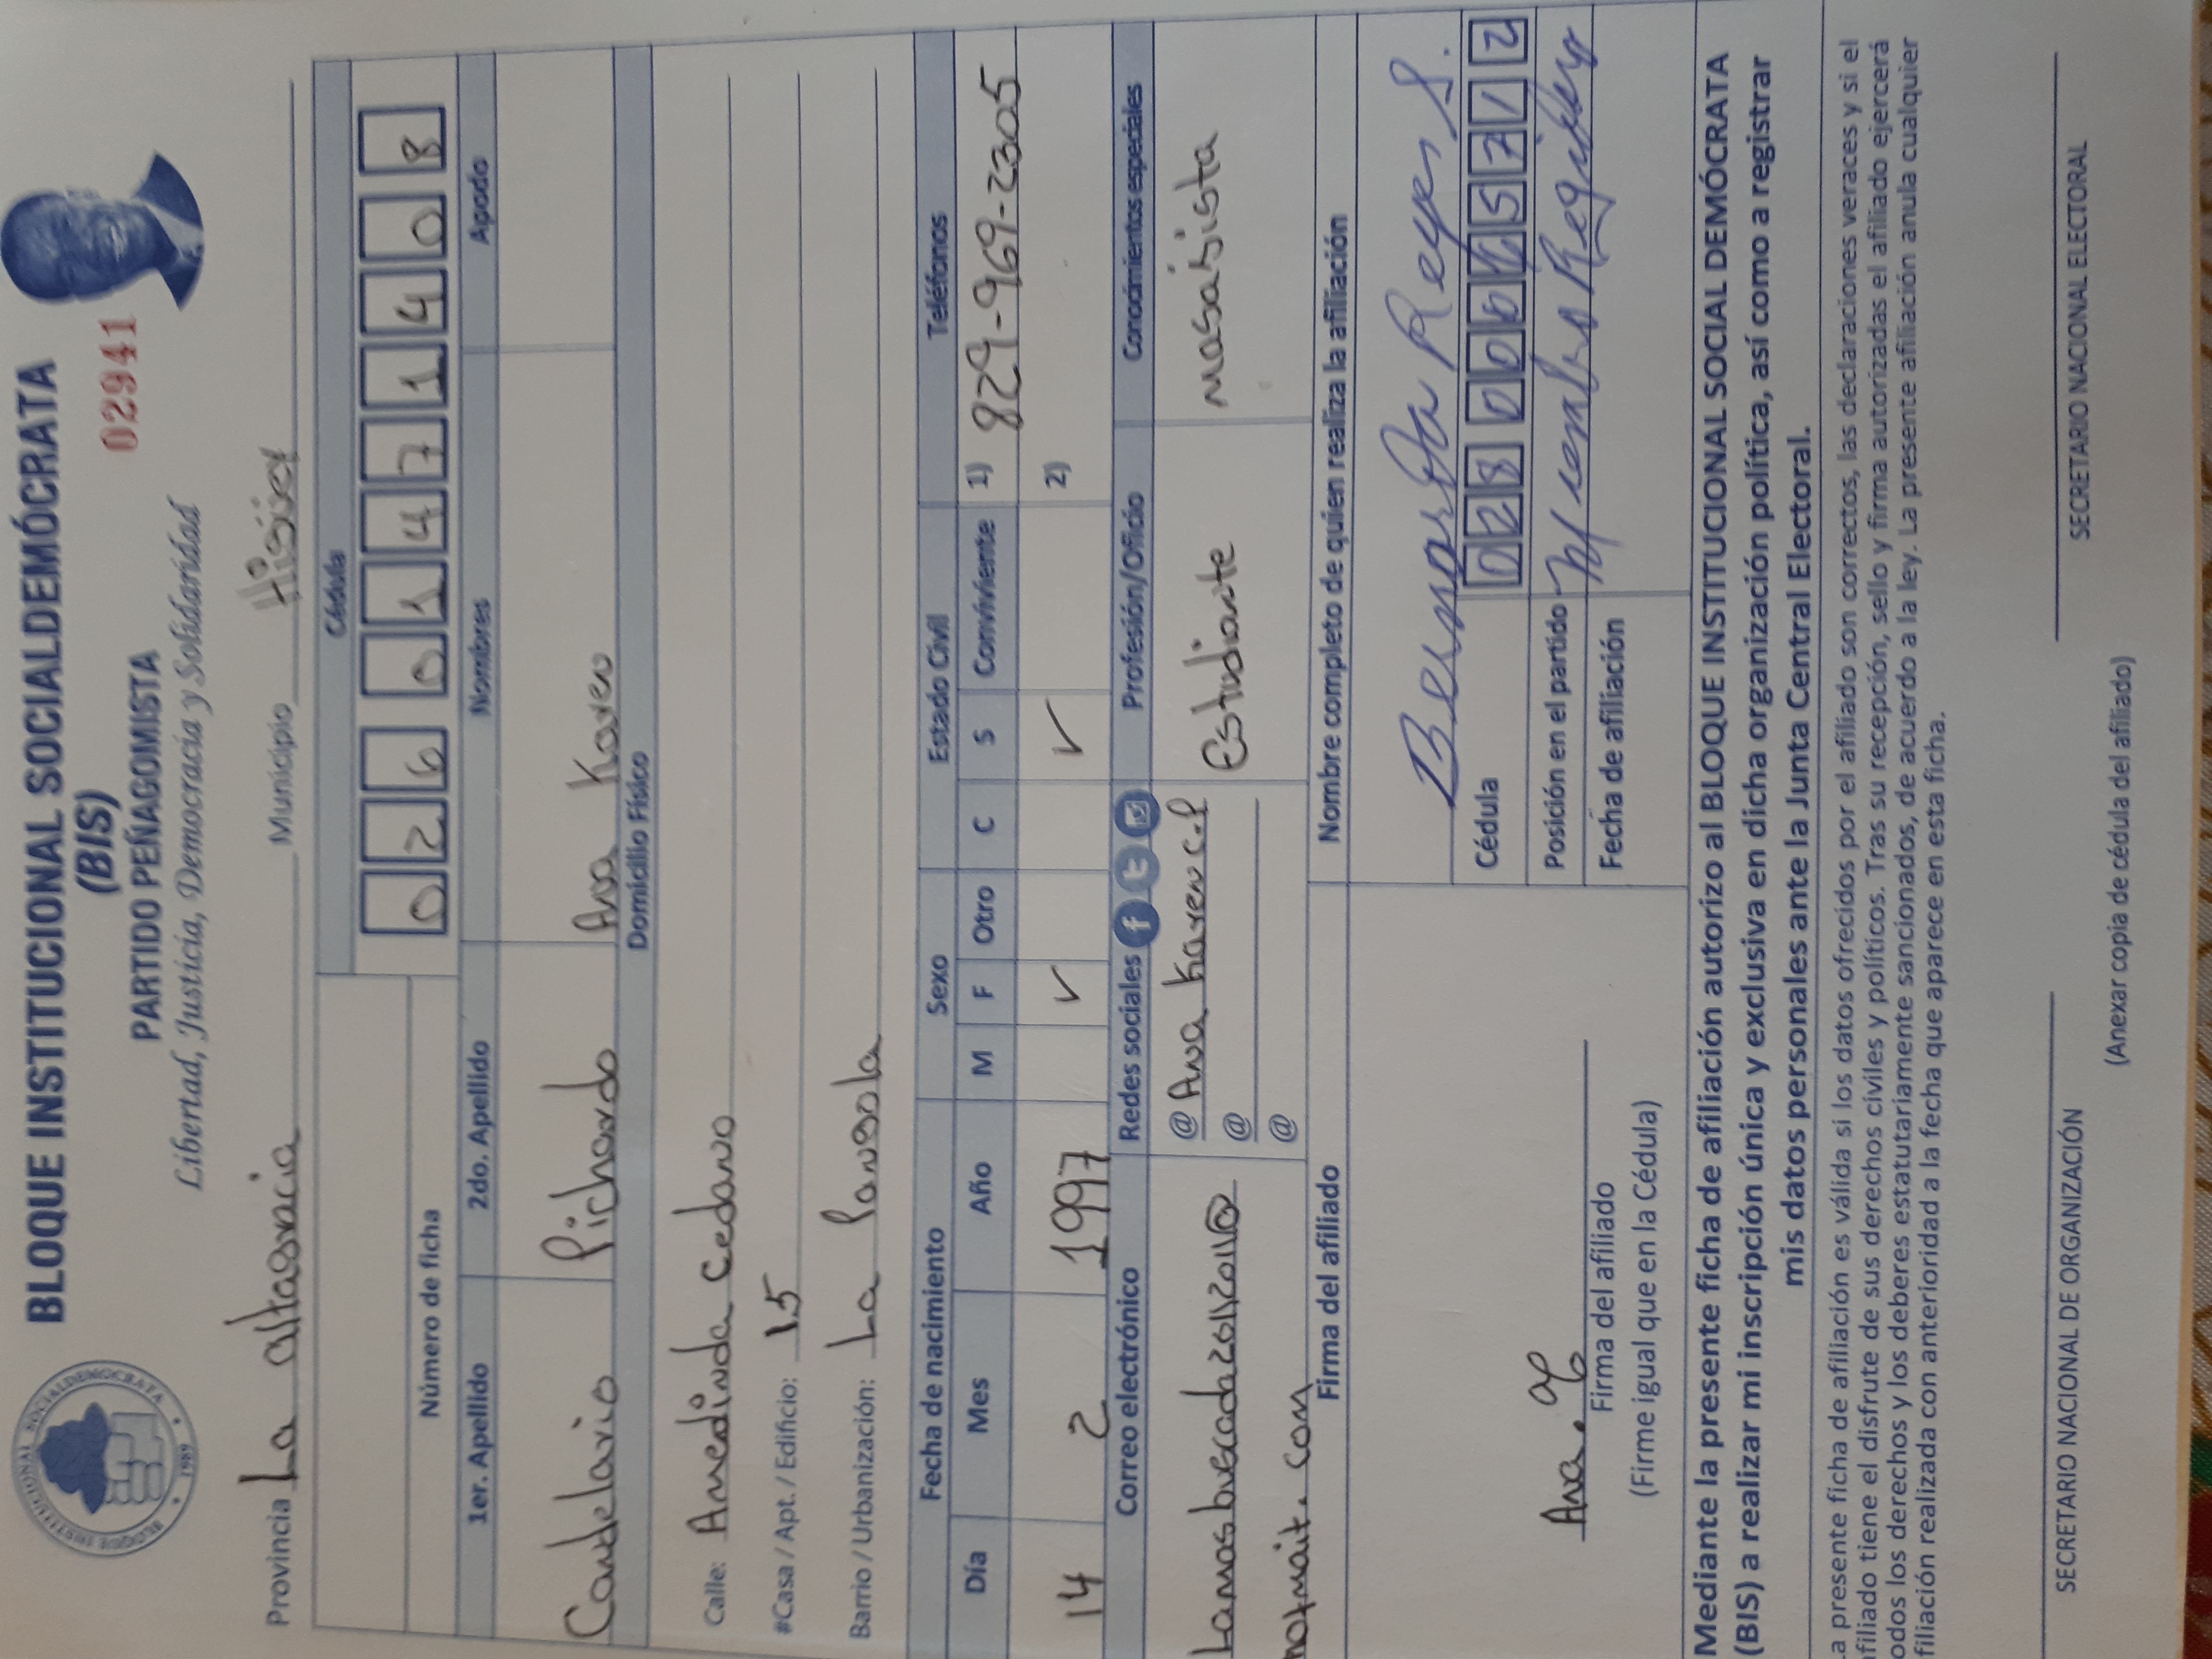 BLOQUE INSTITUCIONAL SOCIALDEMÓCRATA
(BIS)
PARTIDO PEÑAGOMISTA
02941
Libertad, Justicia, Democracia y Solidaridad
BLOQUE INSTITUCIONAL SOCIALDEMOCRATA
1989
Provincia La altagracia Municipio Higüey
Cédula
026 0147140 8
Número de ficha
1er. Apellido 2do. Apellido Nombres Apodo
Candelario Pichardo Ana Karen
Domicilio Físico
Calle: Amedinda Cedano
#Casa / Apt. / Edificio: 15
Barrio / Urbanización: La Pangola
Fecha de nacimiento Sexo Estado Civil Teléfonos
Día Mes Año M F Otro C S Conviviente 1) 829-969-2305
14 2 1997 ✓ ✓ 2)
Correo electrónico Redes sociales Profesión/Oficio Conocimientos especiales
@ Ana Karen C.P Estudiante masajista
@
@
Firma del afiliado Nombre completo de quien realiza la afiliación
Reyes S.
Cédula
Posición en el partido
Fecha de afiliación
Ana.
Firma del afiliado
(Firme igual que en la Cédula)
Mediante la presente ficha de afiliación autorizo al BLOQUE INSTITUCIONAL SOCIAL DEMÓCRATA
(BIS) a realizar mi inscripción única y exclusiva en dicha organización política, así como a registrar
mis datos personales ante la Junta Central Electoral.
a presente ficha de afiliación es válida si los datos ofrecidos por el afiliado son correctos, las declaraciones veraces y si el
filiado tiene el disfrute de sus derechos civiles y políticos. Tras su recepción, sello y firma autorizadas el afiliado ejercerá
odos los derechos y los deberes estatutariamente sancionados, de acuerdo a la ley. La presente afiliación anula cualquier
filiación realizada con anterioridad a la fecha que aparece en esta ficha.
SECRETARIO NACIONAL DE ORGANIZACIÓN SECRETARIO NACIONAL ELECTORAL
(Anexar copia de cédula del afiliado)